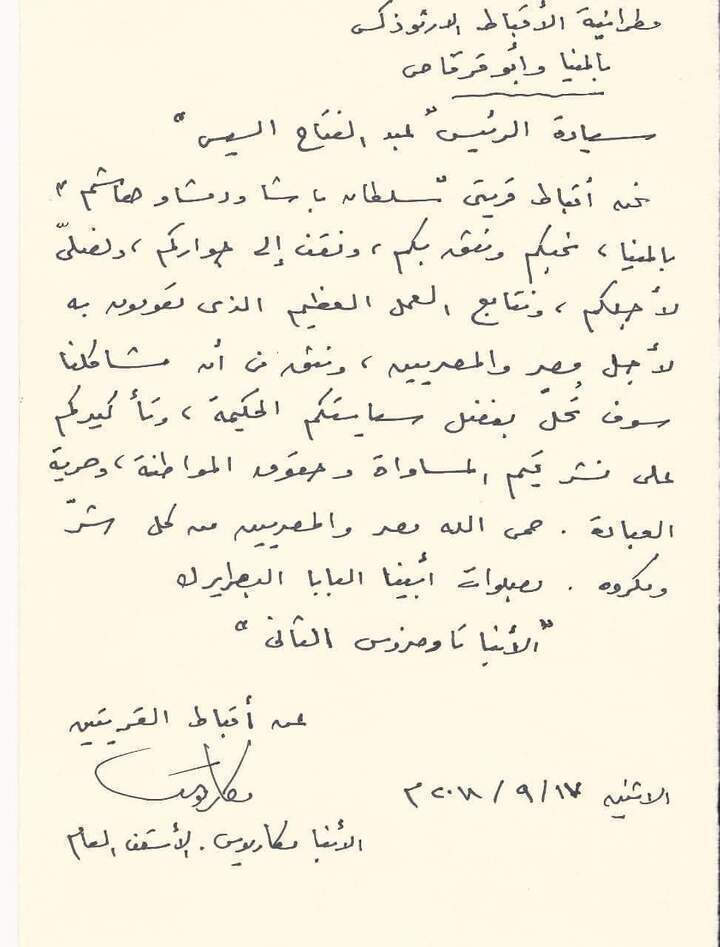 مطرانية الأقباط الارثوذكس
بالمنيا وأبو قرقاص
سيادة الرئيس "عبد الفتاح السيسى"
نحن أقباط قريتى "سلطان باشا ودمشاو هاشم"
بالمنيا، نحبكم ونثق بكم، ونقف إلى جواركم، ونصلىّ
لأجلكم، ونتابع العمل العظيم الذى تقومون به
لأجل مصر والمصريين، ونثق فى أن مشاكلنا
سوف تُحلّ بفضل سياستكم الحكيمة، وتأكيدكم
على نشر قيم المساواة وحقوق المواطنة، وحرية
العبادة. حمى الله مصر والمصريين من كل شرّ
ومكروه. بصلوات أبينا البابا البطريرك
"الأنبا تاوضروس الثانى"
عن أقباط القريتين
مكاريوس
الاثنين ١٧/٩/٢٠١٨م
الأنبا مكاريوس. الأسقف العام